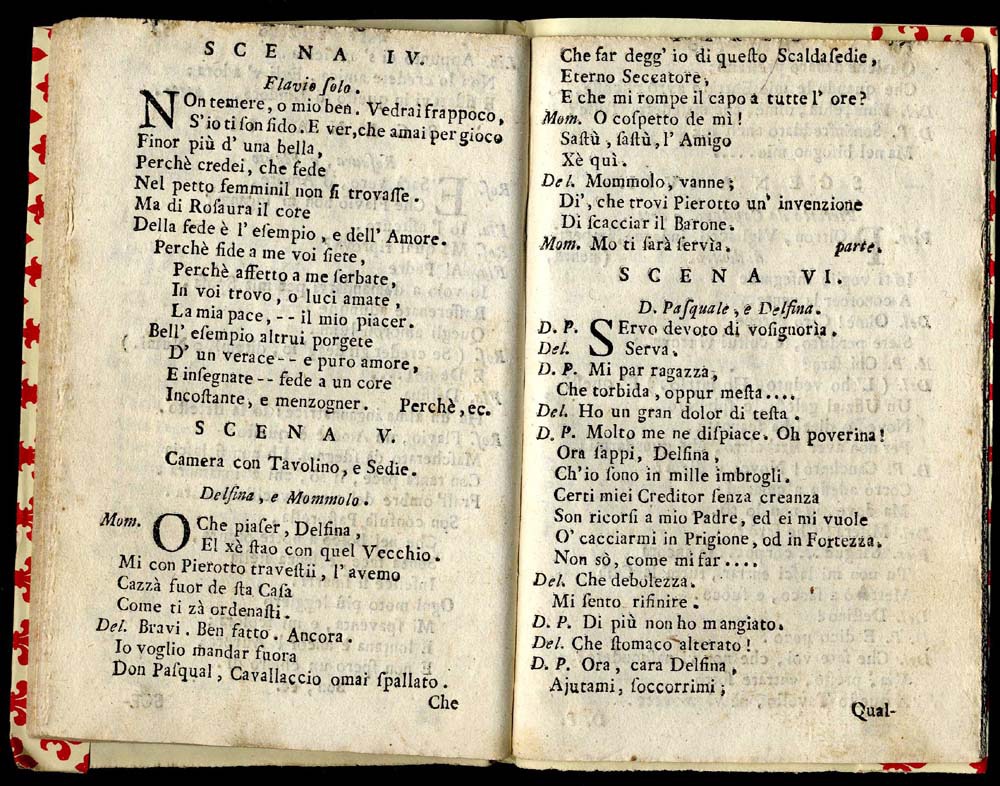 SCENA IV.
Flavio ſolo.
NOn temere, o mio ben. Vedrai frappoco,
S'io ti ſon fido. E ver, che amai per gioco
Finor più d' una bella,
Perchè credei, che fede
Nel petto femminil non ſi trovaſſe.
Ma di Roſaura il core
Della fede è l' eſempio, e dell' Amore.
Perchè fide a me voi ſiete,
Perchè affetto a me ſerbate,
In voi trovo, o luci amate,
La mia pace, -- il mio piacer.
Bell' eſempio altrui porgete
D' un verace -- e puro amore,
E inſegnate -- fede a un core
Incoſtante, e menzogner. Perchè, ec.
SCENA V.
Camera con Tavolino, e Sedie.
Delfina, e Mommolo.
Mom. OChe piaſer, Delfina,
El xè ſtao con quel Vecchio.
Mi con Pierotto traveſtii, l' avemo
Cazzà fuor de ſta Caſa
Come ti zà ordenaſti.
Del. Bravi. Ben fatto. Ancora.
Io voglio mandar fuora
Don Paſqual, Cavallaccio omai ſpallato.
Che
Che far degg' io di queſto Scaldaſedie,
Eterno Seccatore,
E che mi rompe il capo a tutte l' ore?
Mom. O coſpetto de mì!
Saſtù, ſaſtù, l' Amigo
Xè quì.
Del. Mommolo, vanne;
Di', che trovi Pierotto un' invenzione
Di ſcacciar il Barone.
Mom. Mo ti ſarà ſervìa. parte.
SCENA VI.
D. Paſquale, e Delfina.
D. P. SErvo devoto di voſignoria.
Del. Serva.
D. P. Mi par ragazza,
Che torbida, oppur meſta....
Del. Ho un gran dolor di teſta.
D. P. Molto me ne diſpiace. Oh poverina!
Ora ſappi, Delfina,
Ch'io ſono in mille imbrogli.
Certi miei Creditor ſenza creanza
Son ricorſi a mio Padre, ed ei mi vuole
O' cacciarmi in Prigione, od in Fortezza.
Non sò, come mi far....
Del. Che debolezza.
Mi ſento rifinire.
D. P. Di più non ho mangiato.
Del. Che ſtomaco alterato!
D. P. Ora, cara Delfina,
Ajutami, ſoccorrimi;
Qual-